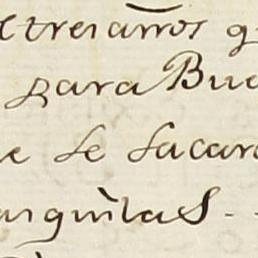 tres años q
para Bue
e se sacar
arquitas